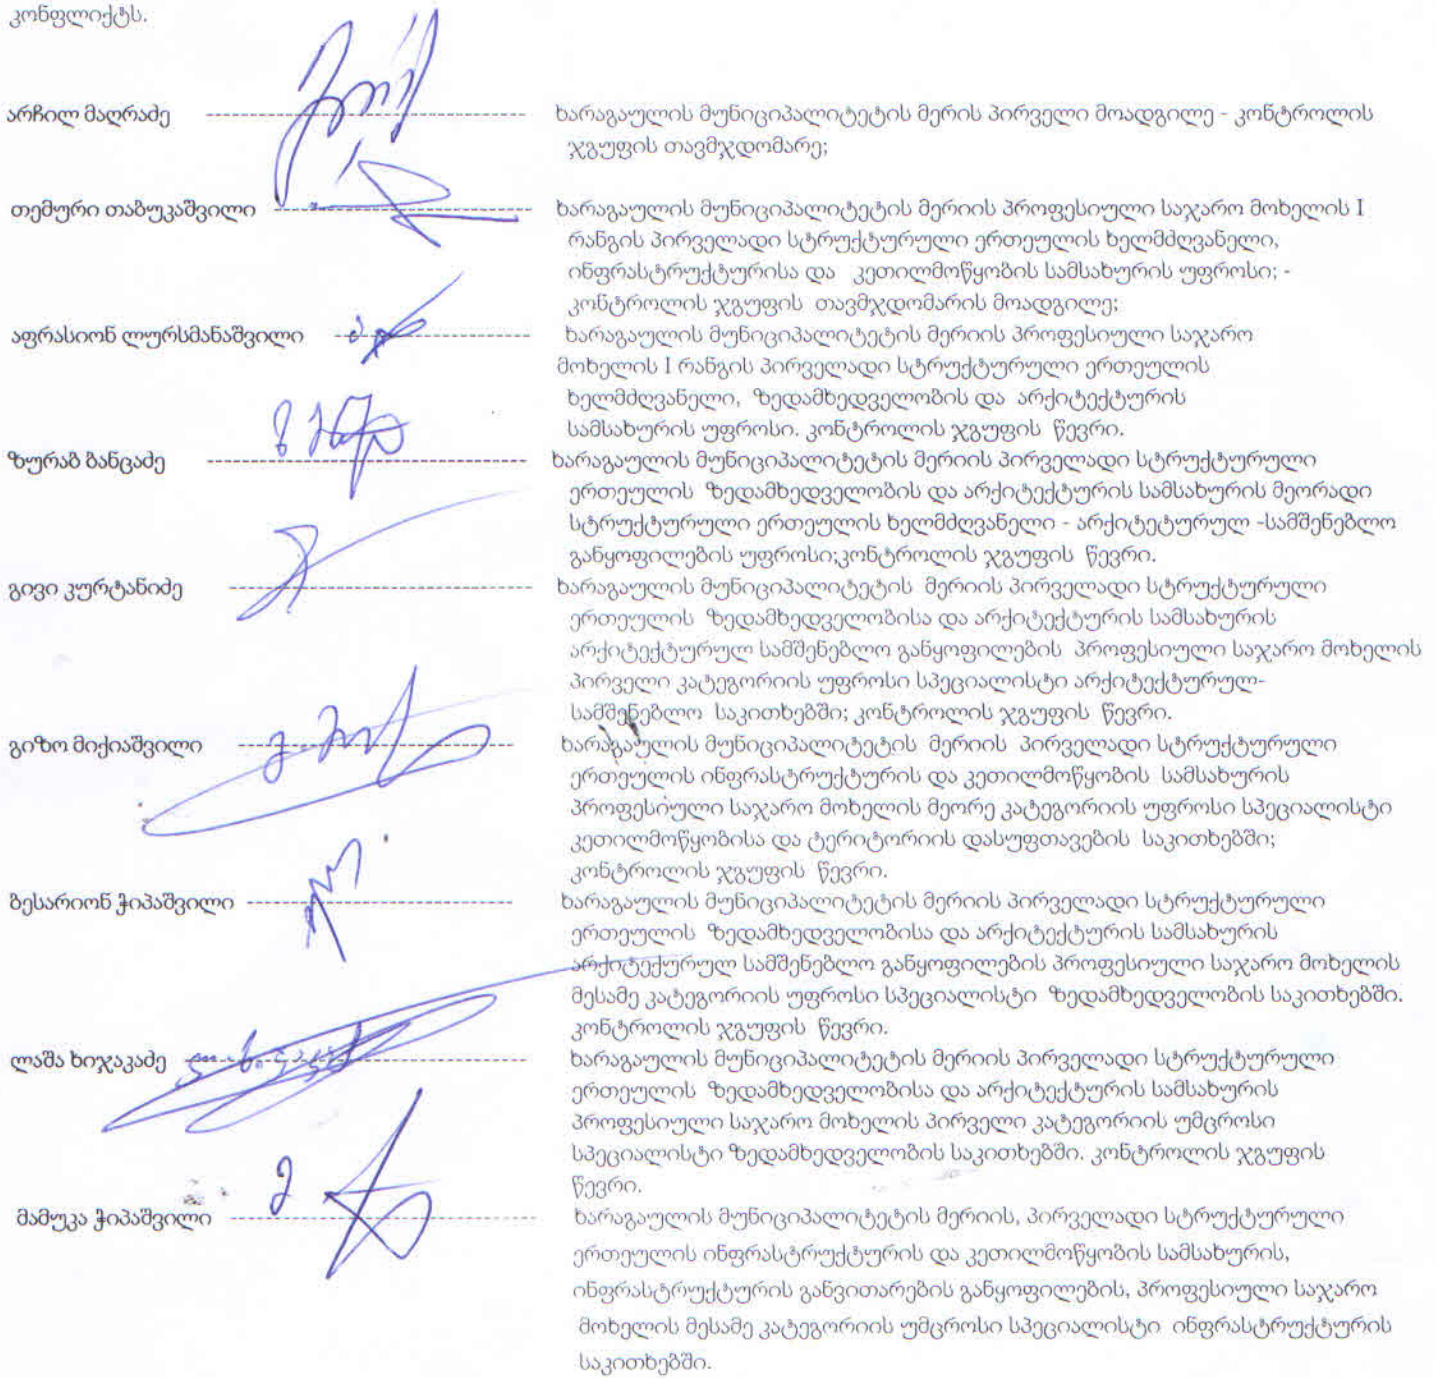 კონფლიქტს.
არჩილ მაღრაძე ხარაგაულის მუნიციპალიტეტის მერის პირველი მოადგილე - კონტროლის
ჯგუფის თავმჯდომარე;
თემური თაბუკაშვილი ხარაგაულის მუნიციპალიტეტის მერიის პროფესიული საჯარო მოხელის I
რანგის პირველადი სტრუქტურული ერთეულის ხელმძღვანელი,
ინფრასტრუქტურისა და კეთილმოწყობის სამსახურის უფროსი; -
კონტროლის ჯგუფის თავმჯდომარის მოადგილე;
აფრასიონ ლურსმანაშვილი ხარაგაულის მუნიციპალიტეტის მერიის პროფესიული საჯარო
მოხელის I რანგის პირველადი სტრუქტურული ერთეულის
ხელმძღვანელი, ზედამხედველობის და არქიტექტურის
სამსახურის უფროსი. კონტროლის ჯგუფის წევრი.
ზურაბ ბანცაძე ხარაგაულის მუნიციპალიტეტის მერიის პირველადი სტრუქტურული
ერთეულის ზედამხედველობის და არქიტექტურის სამსახურის მეორადი
სტრუქტურული ერთეულის ხელმძღვანელი - არქიტეტურულ -სამშენებლო
განყოფილების უფროსი;კონტროლის ჯგუფის წევრი.
გივი კურტანიძე ხარაგაულის მუნიციპალიტეტის მერიის პირველადი სტრუქტურული
ერთეულის ზედამხედველობისა და არქიტექტურის სამსახურის
არქიტექტურულ სამშენებლო განყოფილების პროფესიული საჯარო მოხელის
პირველი კატეგორიის უფროსი სპეციალისტი არქიტექტურულ-
სამშენებლო საკითხებში; კონტროლის ჯგუფის წევრი.
გიზო მიქიაშვილი ხარაგაულის მუნიციპალიტეტის მერიის პირველადი სტრუქტურული
ერთეულის ინფრასტრუქტურის და კეთილმოწყობის სამსახურის
პროფესიული საჯარო მოხელის მეორე კატეგორიის უფროსი სპეციალისტი
კეთილმოწყობისა და ტერიტორიის დასუფთავების საკითხებში;
კონტროლის ჯგუფის წევრი.
ბესარიონ ჭიპაშვილი ხარაგაულის მუნიციპალიტეტის მერიის პირველადი სტრუქტურული
ერთეულის ზედამხედველობისა და არქიტექტურის სამსახურის
არქიტექურულ სამშენებლო განყოფილების პროფესიული საჯარო მოხელის
მესამე კატეგორიის უფროსი სპეციალისტი ზედამხედველობის საკითხებში.
კონტროლის ჯგუფის წევრი.
ლაშა ხიჯაკაძე ხარაგაულის მუნიციპალიტეტის მერიის პირველადი სტრუქტურული
ერთეულის ზედამხედველობისა და არქიტექტურის სამსახურის
პროფესიული საჯარო მოხელის პირველი კატეგორიის უმცროსი
სპეციალისტი ზედამხედველობის საკითხებში. კონტროლის ჯგუფის
წევრი.
მამუკა ჭიპაშვილი ხარაგაულის მუნიციპალიტეტის მერიის, პირველადი სტრუქტურული
ერთეულის ინფრასტრუქტურის და კეთილმოწყობის სამსახურის,
ინფრასტრუქტურის განვითარების განყოფილების, პროფესიული საჯარო
მოხელის მესამე კატეგორიის უმცროსი სპეციალისტი ინფრასტრუქტურის
საკითხებში.